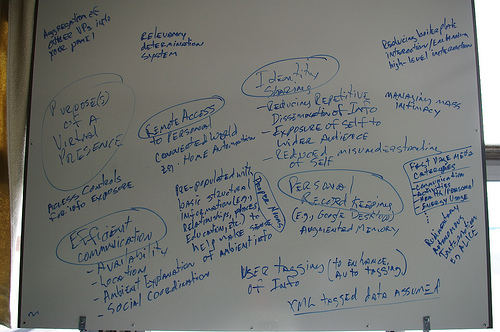 Aggregation of
other VPs into
your panel
Relevancy
determination
system
Reducing boilerplate
interaction/Enhancing
high-level interaction
Identity
Sharing
- Reducing Repetitive
Dissemination of Info
- Exposure of Self to
Wider Audience
- Reduced misunderstanding
of Self
Managing mass
intimacy
Purpose(s)
of A
Virtual
Presence
Remote Access
to Personal
Connected World
eg. Home Automation
Access Controls
for info exposure
Pre-populated with
basic structural
information (e.g.,
Relationships, places,
Education, etc.) to
help make sense
of ambient info
Personal
Record Keeping
(e.g., Google Desktop)
Augmented Memory
Past Dage Media
Categories
- Communication
- Activities
- Health (Personal)
- Energy Usage
Efficient
Communication
- Availability
- Location
- Ambient Explanation
- Social Coordination
User tagging (to enhance
of Info auto tagging)
XML tagged data assumed